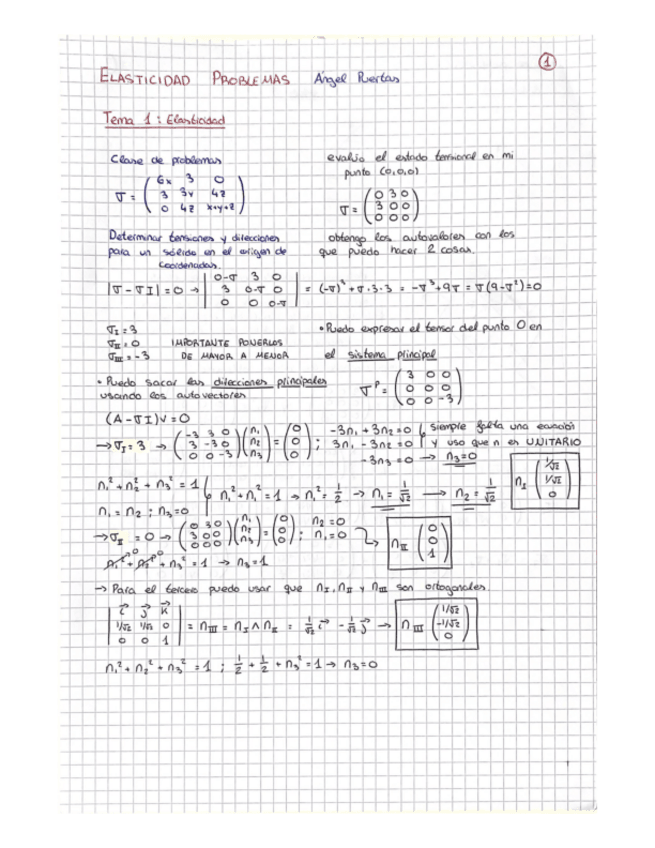 1
ELASTICIDAD PROBLEMAS Ángel Puertas
Tema 1: Elasticidad
Clase de problemas
σ = ( 6x 3 0 / 3 3y 4z / 0 4z x+y+z )
evalúo el estado tensional en mi
punto (0,0,0)
σ = ( 0 3 0 / 3 0 0 / 0 0 0 )
Determinar tensiones y direcciones
para un sólido en el origen de
coordenadas.
obtengo los autovalores con los
que puedo hacer 2 cosas.
|σ - σI| = 0 → | 0-σ 3 0 / 3 0-σ 0 / 0 0 0-σ | = (-σ)³ + σ·3·3 = -σ³ + 9σ = σ(9-σ²) = 0
σI = 3
σII = 0 IMPORTANTE PONERLOS
σIII = -3 DE MAYOR A MENOR
• Puedo expresar el tensor del punto O en
el sistema principal
σᴾ = ( 3 0 0 / 0 0 0 / 0 0 -3 )
• Puedo sacar las direcciones principales
usando los autovectores
(A - σI)v = 0
→ σI = 3 → ( -3 3 0 / 3 -3 0 / 0 0 -3 ) ( n1 / n2 / n3 ) = ( 0 / 0 / 0 ) ; -3n1 + 3n2 = 0
3n1 - 3n2 = 0
-3n3 = 0 → n3 = 0
siempre falta una ecuación
y uso que n es UNITARIO
n1² + n2² + n3² = 1
n1 = n2 ; n3 = 0
n1² + n1² = 1 → n1² = 1/2 → n1 = 1/√2 → n2 = 1/√2
nI ( 1/√2 / 1/√2 / 0 )
→ σII = 0 → ( 0 3 0 / 3 0 0 / 0 0 0 ) ( n1 / n2 / n3 ) = ( 0 / 0 / 0 ) ; n2 = 0 ; n1 = 0
nII ( 0 / 0 / 1 )
n1² + n2² + n3² = 1 → n3 = 1
→ Para el tercero puedo usar que nI, nII y nIII son ortogonales.
| i j k / 1/√2 1/√2 0 / 0 0 1 | = nIII = nI ∧ nII = 1/√2 i - 1/√2 j → nIII ( 1/√2 / -1/√2 / 0 )
n1² + n2² + n3² = 1 ; 1/2 + 1/2 + n3² = 1 → n3 = 0